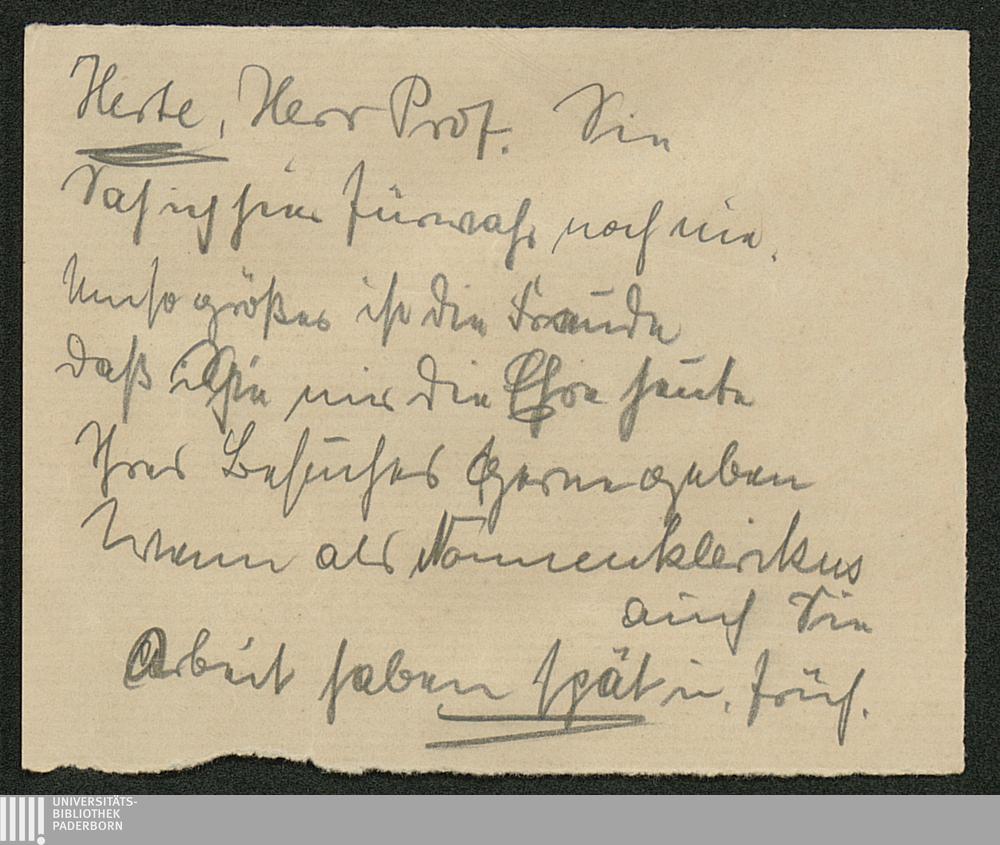 Herte, Herr Prof. Sie
Sah ich hier fürwahr noch nie.
Umso größer ist die Freude
daß Sie mir die Ehre heute
Ihres Besuches gerne geben
Wenn als Nonnenklerikus
auch Sie
Arbeit haben spät u. früh.
UNIVERSITÄTS-
BIBLIOTHEK
PADERBORN